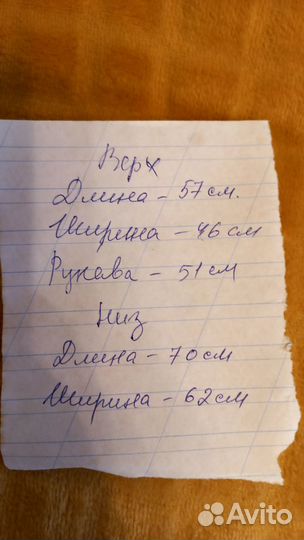 Верх
Длина - 57 см.
Ширина - 46 см
Рукава - 51 см
Низ
Длина - 70 см
Ширина - 62 см
Avito